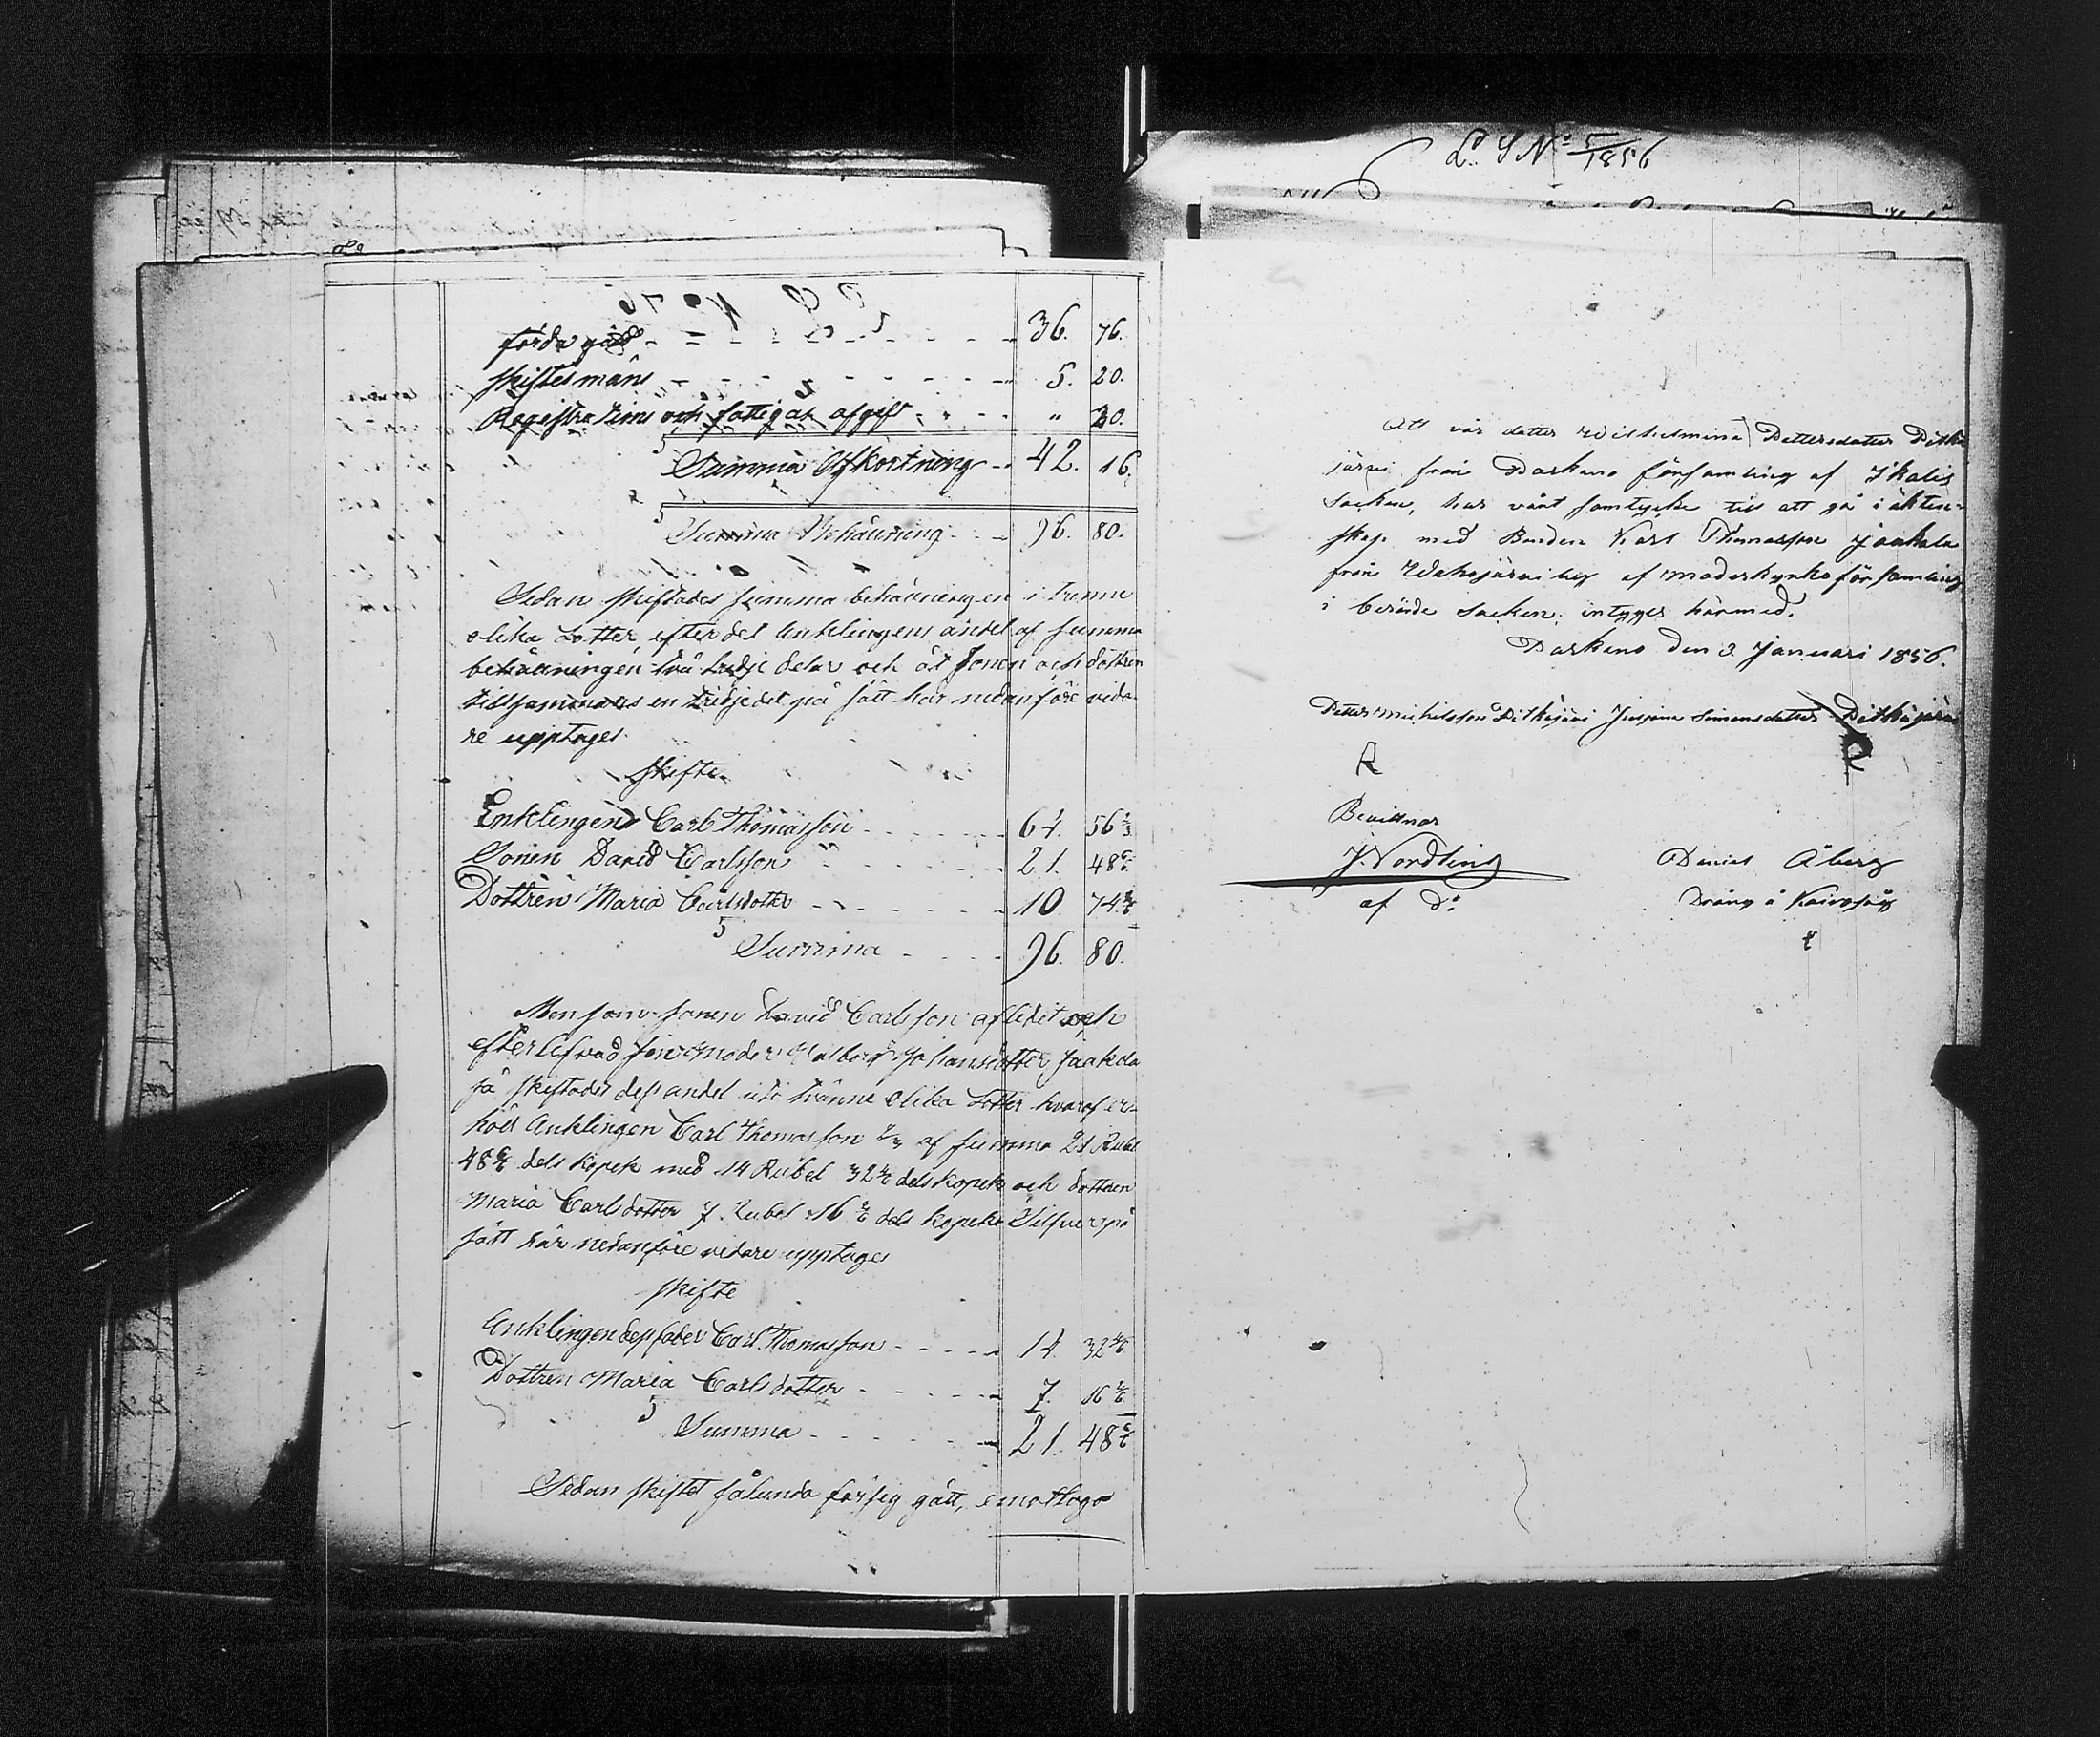 förda gäld - - - - - 36. 76.
skiftesmäns - - - - - 5. 20.
Registrations och fattigas afgift - - " 20.
Summa Afkortning - 42. 16.
Summa Behållning - 96. 80.
Sedan skiftades summa behållningen i trenne
olika Lotter, efter det Enklingens andel af summa
behållningen två tredje delar och åt sonen och dottren
tillsammans en tridjedel på sätt här nedanföre vida-
re upptages.
Skifte
Enklingen Carl Thomasson - - - 64. 56 2/6
Sonen David Carlsson - - - 21. 48 6/6
Dottren Maria Carlsdotter - - - 10 74 4/6
Summa - - - 96. 80.
Men som sonen David Carlsson aflidit och
efterlefvad sin Moder Johansdotter Jaakola
så skiftades dess andel uti tvänne olika Lotter hvaraf er-
höll Anklingen Carl Thomasson 2/3 af summa 21 Rubel
48 6/6 dels kopek med 14 Rubel 32 4/6 dels kopek och dottren
Maria Carlsdotter 7 Rubel 16 2/6 dels kopek Silfver på
sätt här nedanföre vidare upptages
skifte
Anklingen dess fader Carl Thomasson - - - 14. 32 4/6
Dottren Maria Carlsdotter - - - 7. 16 2/6
Summa - - - 21. 48 6/6
Sedan skiftet sålunda försig gått, emottogo
L. S. No 5/1856
Att vår dotter Wilhelmina Pettersdotter Pitkä
järvi från Parkano församling af Ikalis
Socken, har vårt samtycke till att gå i äkten-
skap med Bonden Karl Thomasson Jaakola
från Vahojärvi by af moderkyrko församling
i berörde Socken; intyges härmed.
Parkano den 3 Januari 1856.
Petter Michelsson Pitkäjärvi Simonsdotter Pitkäjärvi
Bevittnar
J. Nordling Daniel Åberg
af do Dräng å